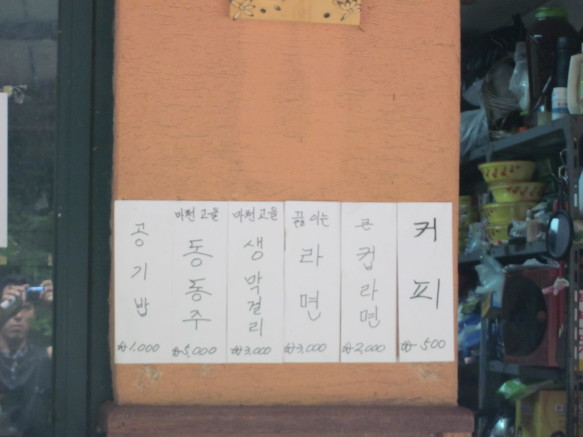 공기밥
₩1,000
마천고을
동동주
₩5,000
마천고을
생막걸리
₩3,000
끓이는
라면
₩3,000
큰
컵라면
₩2,000
커피
₩500